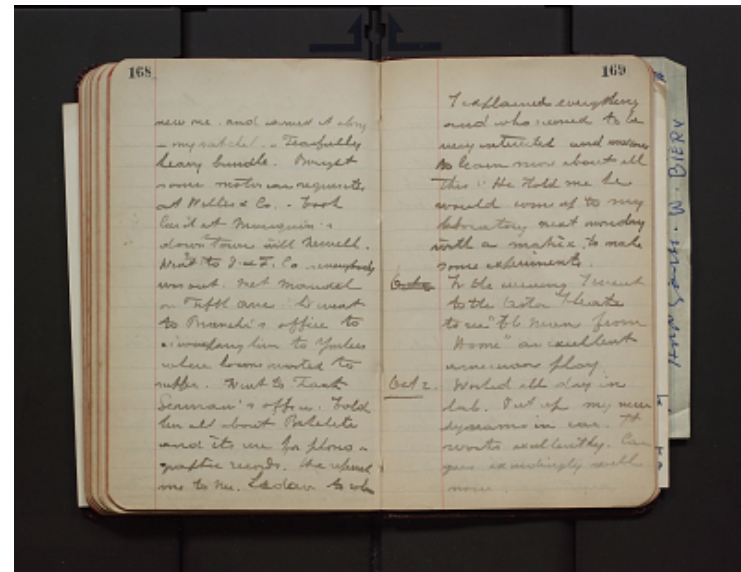 168
new one. and carried it along
in my satchel. - Fearfully
heavy bundle. Bought
some motor car requisites
at Willis & Co. - Took
lunch at Mouquin's
down town with Newell.
Went to J. & F. Co. everybody
was out. Met
on Fifth ave. & went
to office to
accompany him to Yonkers
where he was invited to
supper. Went to Frank
Seaman's office. Told
him all about Bakelite
and its use for phono-
graphic records. He referred
me to Mr. to whom
169
I explained everything
and who seemed to be
very interested and anxious
to learn more about all
this. He told me he
would come up to my
laboratory next monday
with a matrix, to make
some experiments.
In the evening I went
to the Astor Theatre
to see "The Man from
Home" an excellent
american play
Oct 2. Worked all day in
lab. Put up my new
dynamo in car. It
works excellently. Car
goes exceedingly well
now.
W. BIERY